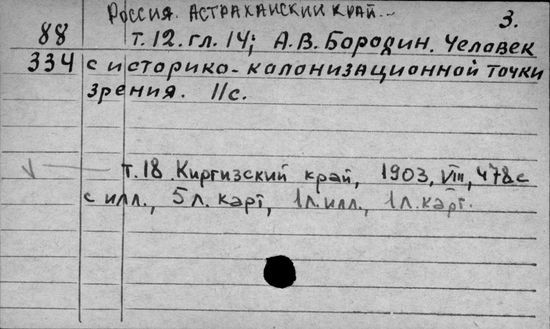 Россия. Астраханский край.- 3.
88 т.12. гл. 14; А.В. Бородин. Человек
334 с историко-колонизационной точки
зрения. 11с.
V — т.18 Киргизский край, 1903, VIII, 478с
с илл., 5 л. карт, 1 л. илл., 1 л. карт.